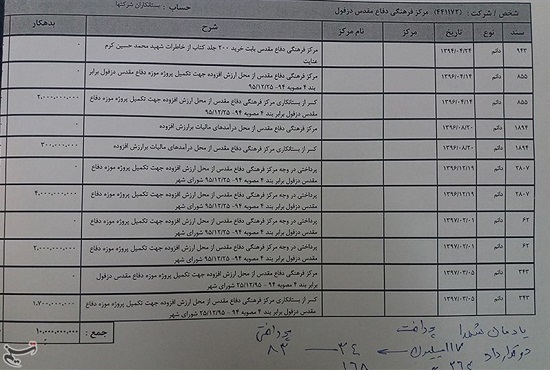 شخص / شرکت : (۴۴۱۱۷۲) مرکز فرهنگی دفاع مقدس دزفول حساب : بستانکاران شرکتها
سند نوع تاریخ مرکز نام مرکز شرح بدهکار
۹۴۳ دائم ۱۳۹۴/۰۴/۲۴ مرکز فرهنگی دفاع مقدس بابت خرید ۲۰۰ جلد کتاب از خاطرات شهید محمد حسین کرم ۰
عنایت
۸۵۵ دائم ۱۳۹۶/۰۴/۱۴ مرکز فرهنگی دفاع مقدس از محل ارزش افزوده جهت تکمیل پروژه موزه دفاع مقدس دزفول برابر ۰
بند ۴ مصوبه ۹۴-۹۵/۱۲/۲۵
۸۵۵ دائم ۱۳۹۶/۰۴/۱۴ کسر از بستانکاری مرکز فرهنگی دفاع مقدس از محل ارزش افزوده جهت تکمیل پروژه موزه دفاع ۲،۰۰۰،۰۰۰،۰۰۰
مقدس دزفول برابر بند ۴ مصوبه ۹۴-۹۵/۱۲/۲۵
۱۸۹۴ دائم ۱۳۹۶/۰۸/۲۰ مرکز فرهنگی دفاع مقدس از محل درآمدهای مالیات برارزش افزوده ۰
۱۸۹۴ دائم ۱۳۹۶/۰۸/۲۰ کسر از بستانکاری مرکز فرهنگی دفاع مقدس از محل درآمدهای مالیات برارزش افزوده ۳۰۰،۰۰۰،۰۰۰
۲۸۰۷ دائم ۱۳۹۶/۱۲/۱۹ پرداختی در وجه مرکز فرهنگی دفاع مقدس از محل ارزش افزوده جهت تکمیل پروژه موزه دفاع ۰
مقدس دزفول برابر بند ۴ مصوبه ۹۴-۹۵/۱۲/۲۵ شورای شهر
۲۸۰۷ دائم ۱۳۹۶/۱۲/۱۹ پرداختی در وجه مرکز فرهنگی دفاع مقدس از محل ارزش افزوده جهت تکمیل پروژه موزه دفاع ۴،۰۰۰،۰۰۰،۰۰۰
مقدس دزفول برابر بند ۴ مصوبه ۹۴-۹۵/۱۲/۲۵ شورای شهر
۶۲ دائم ۱۳۹۷/۰۲/۰۱ پرداختی در وجه مرکز فرهنگی دفاع مقدس از محل ارزش افزوده جهت تکمیل پروژه موزه دفاع ۰
مقدس دزفول برابر بند ۴ مصوبه ۹۴-۹۵/۱۲/۲۵ شورای شهر
۶۲ دائم ۱۳۹۷/۰۲/۰۱ پرداختی در وجه مرکز فرهنگی دفاع مقدس از محل ارزش افزوده جهت تکمیل پروژه موزه دفاع ۲،۰۰۰،۰۰۰،۰۰۰
مقدس دزفول برابر بند ۴ مصوبه ۹۴-۹۵/۱۲/۲۵ شورای شهر
۳۴۳ دائم ۱۳۹۷/۰۳/۰۵ مرکز فرهنگی دفاع مقدس از محل ارزش افزوده جهت تکمیل پروژه موزه دفاع مقدس دزفول ۰
برابر بند ۴ مصوبه ۹۴-۲۵/۱۲/۹۵ شورای شهر
۳۴۳ دائم ۱۳۹۷/۰۳/۰۵ کسر از بستانکاری مرکز فرهنگی دفاع مقدس از محل ارزش افزوده جهت تکمیل پروژه موزه دفاع ۱،۷۰۰،۰۰۰،۰۰۰
مقدس دزفول برابر بند ۴ مصوبه ۹۴-۲۵/۱۲/۹۵ شورای شهر
جمع : ۱۰،۰۰۰،۰۰۰،۰۰۰
یادمان شهدا پرداخت پرداختی
دو قرارداد ۳۴ ۸۳
۱۶۸
تسنیم